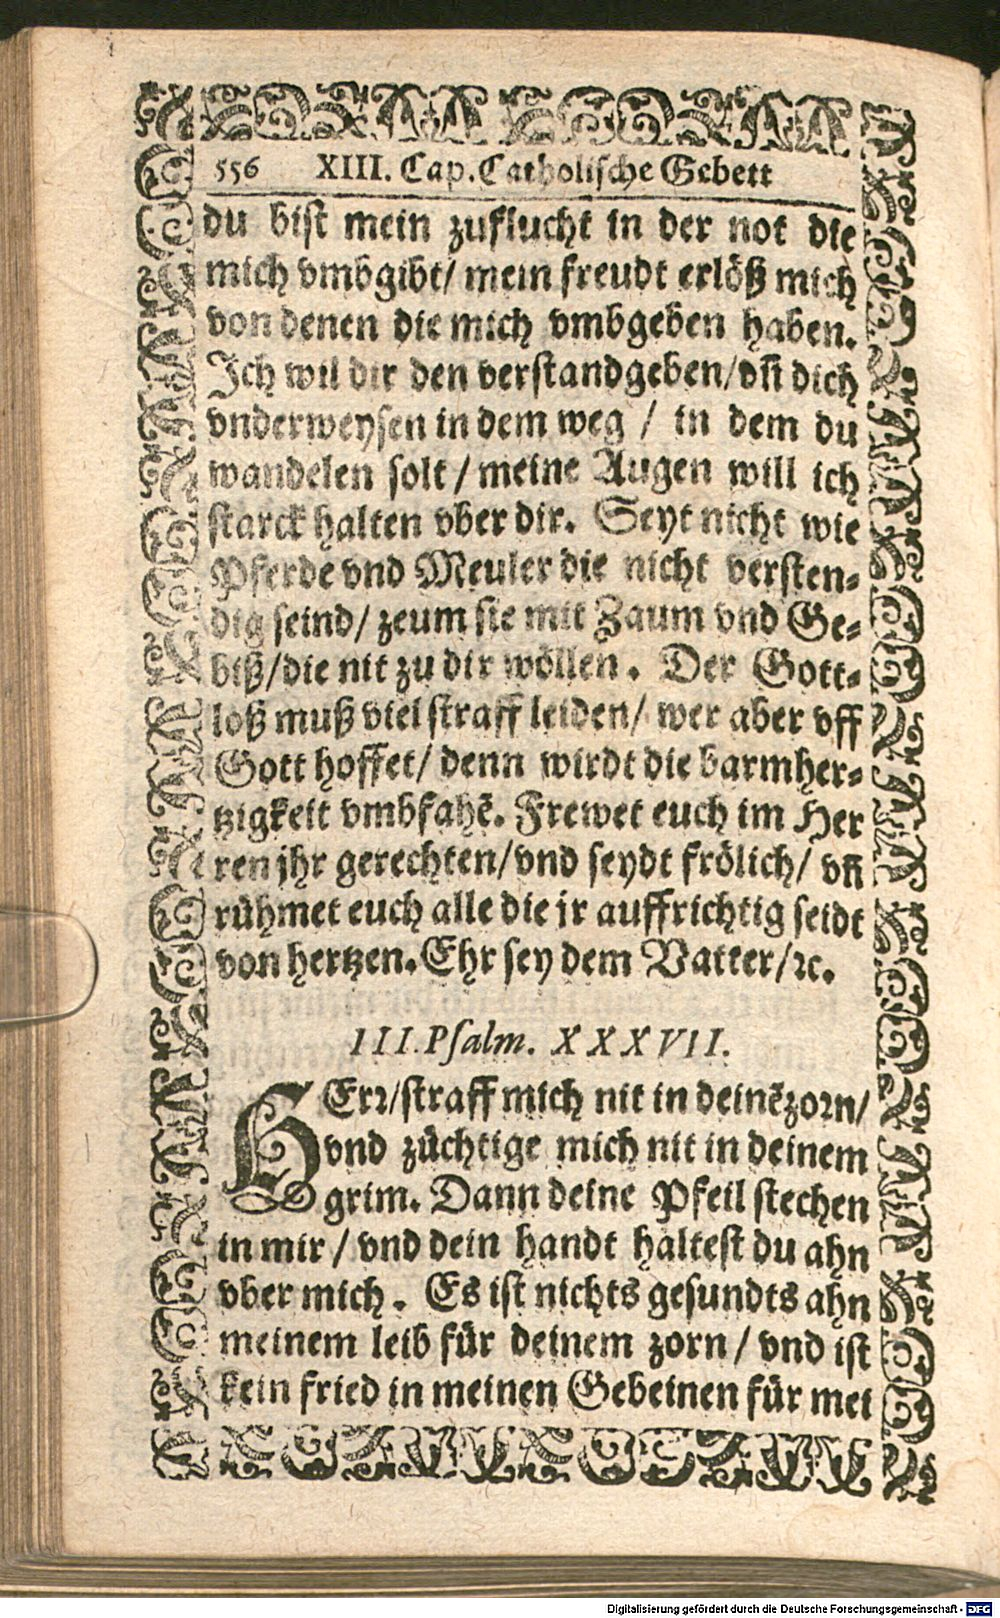 556 XIII. Cap. Catholische Gebett
du bist mein zuflucht in der not die
mich vmbgibt/ mein freudt erlöß mich
von denen die mich vmbgeben haben.
Ich wil dir den verstandgeben/vñ dich
vnderweysen in dem weg / in dem du
wandelen solt / meine Augen will ich
starck halten vber dir. Seyt nicht wie
Pferde vnd Meuler die nicht versten-
dig seind/ zeum sie mit Zaum vnd Ge-
biß/die nit zu dir wöllen. Der Gott-
loß muß viel straff leiden/ wer aber vff
Gott hoffet/ denn wirdt die barmher-
tzigkeit vmbfahē. Frewet euch im Her
ren jhr gerechten/vnd seydt frölich/ vñ
rühmet euch alle die jr auffrichtig seidt
von hertzen. Ehr sey dem Vatter/ꝛc.
III. Psalm. XXXVII.
HErꝛ/straff mich nit in deinē zoꝛn/
vnd züchtige mich nit in deinem
grim. Dann deine Pfeil stechen
in mir / vnd dein handt haltest du ahn
vber mich. Es ist nichts gesundts ahn
meinem leib für deinem zorn / vnd ist
kein fried in meinen Gebeinen für mei
Digitalisierung gefördert durch die Deutsche Forschungsgemeinschaft - DFG